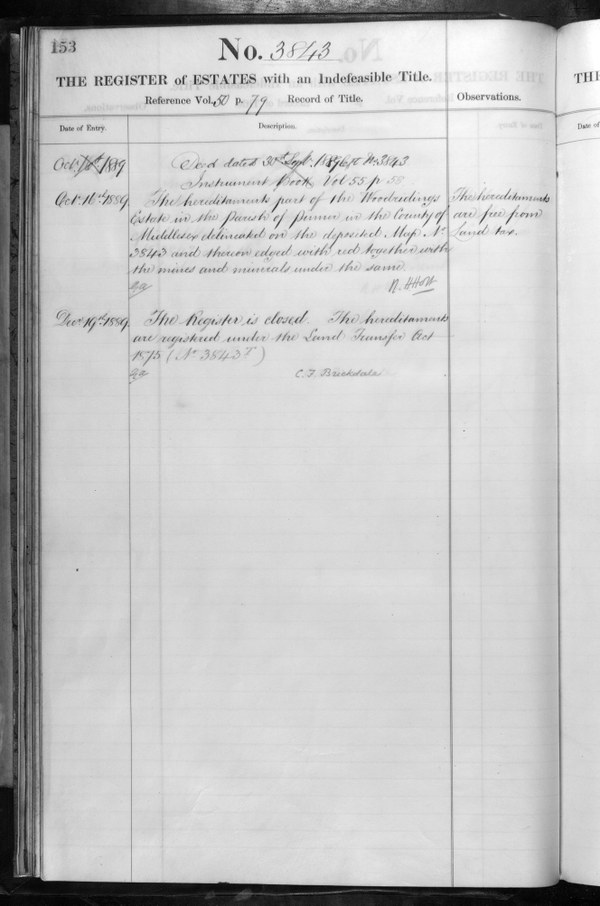 153
No. 3843
THE REGISTER of ESTATES with an Indefeasible Title.
Reference Vol. 50 p. 79 Record of Title.
Observations.
Date of Entry.
Description.
Deed dated 30th Sept. No 3843
Instrument Book Vol 55 p 58
Oct. 16th 1889
The hereditaments part of the Woodridings
Estate in the Parish of Pinner in the County of
Middlesex delineated on the deposited Map No
3843 and thereon edged with red together with
the mines and minerals under the same
R. H Holt
The hereditaments
are free from
Land tax.
Decr 19th 1889
The Register is closed. The hereditaments
are registered under the Land Transfer Act
1875 (No 3843T)
C. F. Brickdale
THE
Date of